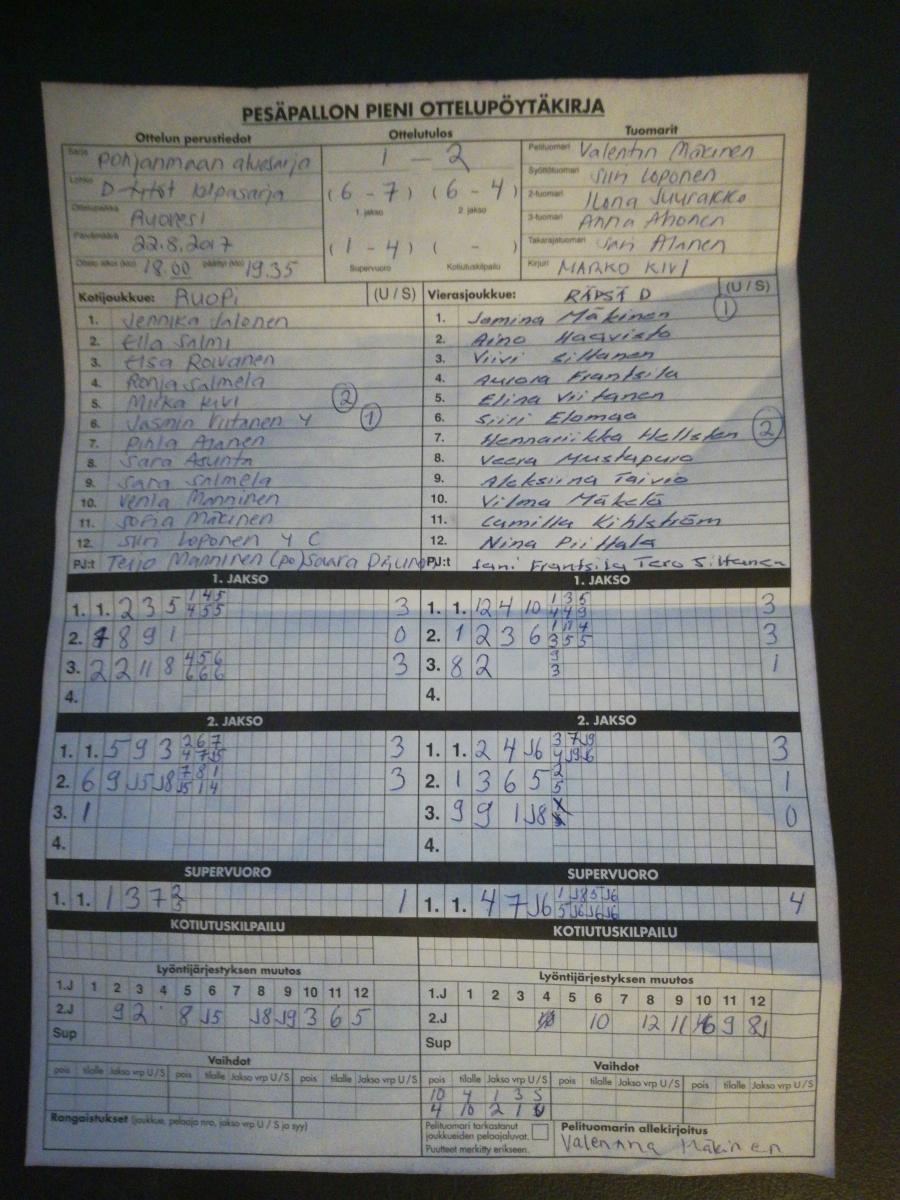 PESÄPALLON PIENI OTTELUPÖYTÄKIRJA
Ottelun perustiedot Ottelutulos Tuomarit
Sarja Pohjanmaan aluesarja
Lohko D-tytöt kilpasarja
Ottelupaikka Ruovesi
Päivämäärä 22.8.2017
Ottelu alkoi (klo) 18.00 päättyi (klo) 19.35
1 – 2
(6 – 7) (6 – 4)
1. jakso 2. jakso
(1 – 4) ( – )
Supervuoro Kotiutuskilpailu
Pelituomari Valentin Mäkinen
Syöttötuomari Siiri Loponen
2-tuomari Ilona Juurakko
3-tuomari Anna Ahonen
Takarajatuomari Sari Alanen
Kirjuri MARKO KIVI
Kotijoukkue: RuoPi (U / S)
1. Jennika Jalonen
2. Ella Salmi
3. Elsa Roivanen
4. Ronja Salmela
5. Mirka Kivi 2
6. Jasmin Viitanen Y 1
7. Pihla Alanen
8. Sara Asunta
9. Sara Salmela
10. Venla Manninen
11. Sofia Mäkinen
12. Siiri Loponen Y C
PJ:t Teijo Manninen (po) Saara
Vierasjoukkue: RÄPSÄ D (U / S)
1. Jamina Mäkinen 1
2. Aino Haavisto
3. Viivi Siltanen
4. Aurora Frantsila
5. Elina Viitanen
6. Siiri Elomaa
7. Hennariikka Hellsten 2
8. Veera Mustapuro
9. Aleksiina Taivio
10. Vilma Mäkelä
11. Camilla Kihlström
12. Nina Piittala
PJ:t Jani Frantsila Tero Siltanen
1. JAKSO
1. 1. 2 3 5 1 4 5 3
4 5 5
2. 8 9 1 0
3. 2 2 11 8 4 5 6 3
6 6 6
4.
1. JAKSO
1. 1. 12 4 10 1 3 5 3
4 4 9
2. 1 2 3 6 1 11 4 3
3 5 5
3. 8 2 9 1
3
4.
2. JAKSO
1. 1. 5 9 3 2 6 7 3
4 7 J5
2. 6 9 J5 J8 7 8 1 3
J5 1 4
3. 1
4.
2. JAKSO
1. 1. 2 4 J6 3 7 J9 3
4 J9 6
2. 1 3 6 5 2 1
5
3. 9 9 1 J8 0
4.
SUPERVUORO
1. 1. 1 3 7 2 1
3
SUPERVUORO
1. 1. 4 7 J6 1 J8 5 J6 4
5 J6 J6 J6
KOTIUTUSKILPAILU
KOTIUTUSKILPAILU
Lyöntijärjestyksen muutos
1.J 1 2 3 4 5 6 7 8 9 10 11 12
2.J 9 2 8 J5 J8 J9 3 6 5
Sup
Lyöntijärjestyksen muutos
1.J 1 2 3 4 5 6 7 8 9 10 11 12
2.J 10 12 11 9
Sup
Vaihdot
pois tilalle Jakso vrp U / S pois tilalle Jakso vrp U / S pois tilalle Jakso vrp U / S
Vaihdot
pois tilalle Jakso vrp U / S pois tilalle Jakso vrp U / S pois tilalle Jakso vrp U / S
10 4 1 3 S
4 10 2 1
Rangaistukset (joukkue, pelaaja nro, jakso vrp U / S ja syy)
Pelituomari tarkastanut
joukkueiden pelaajaluvat.
Puutteet merkitty erikseen.
Pelituomarin allekirjoitus
Mäkinen